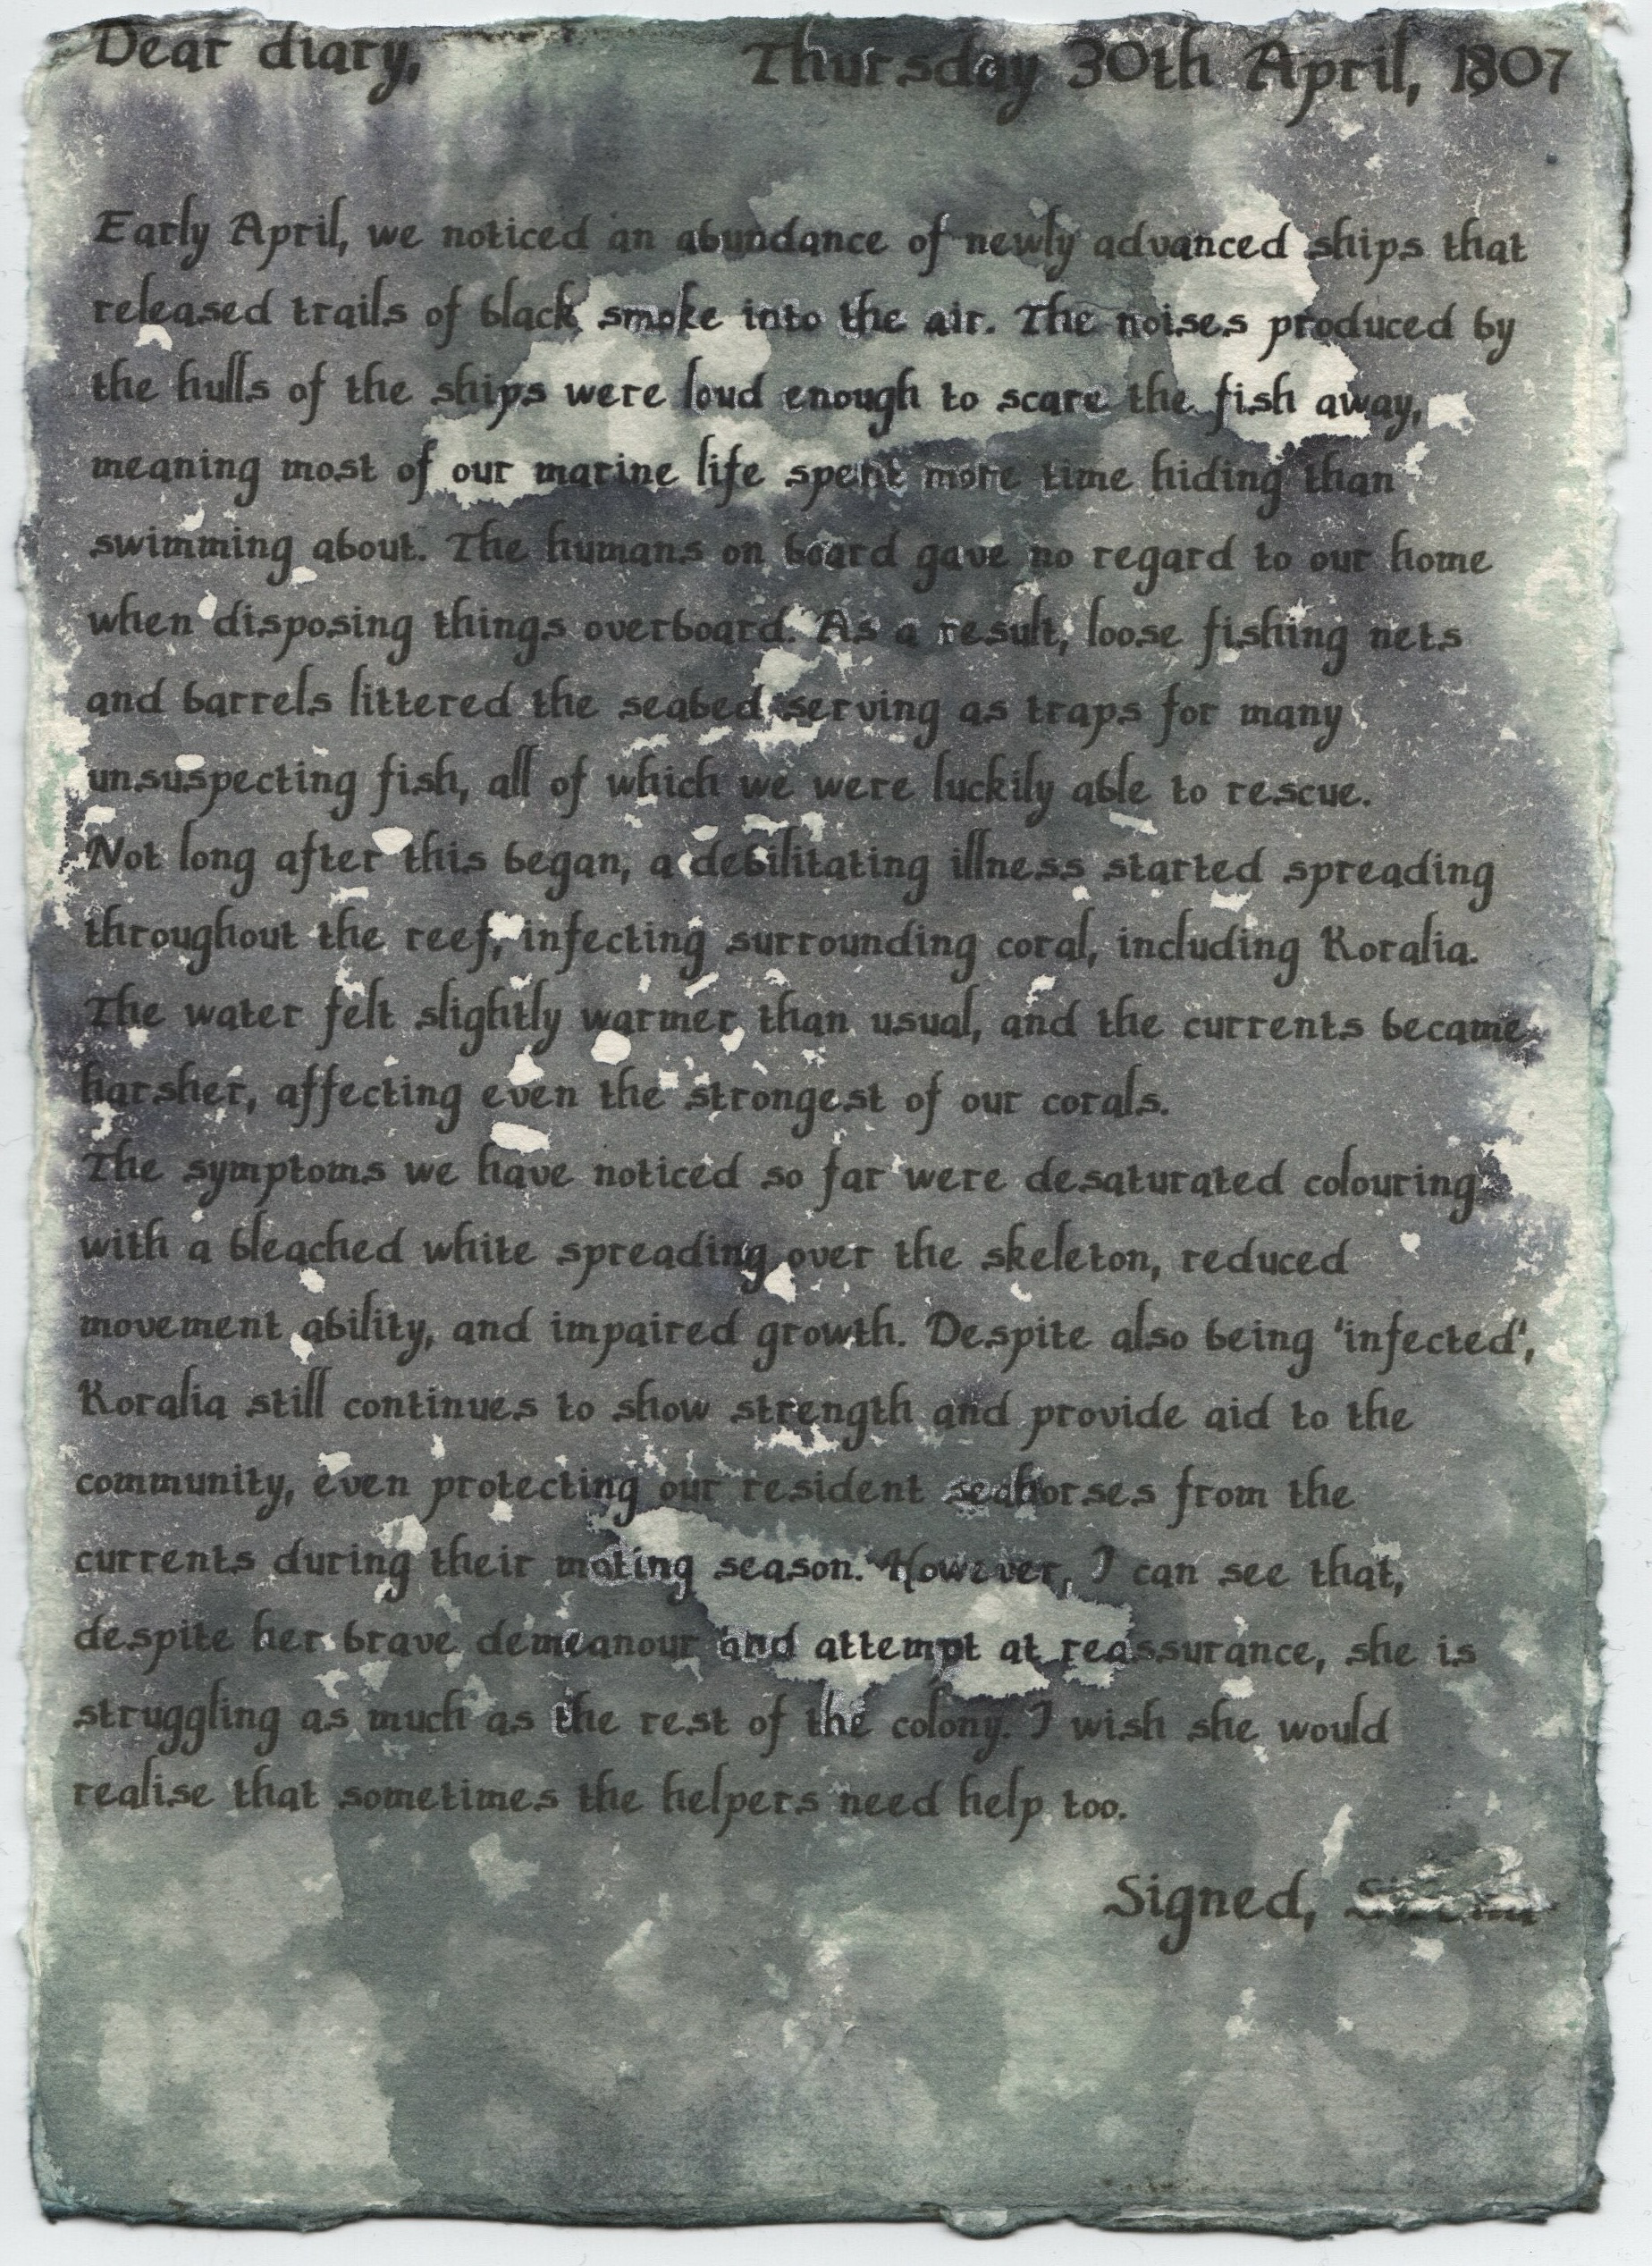 Dear diary, Thursday 30th April, 1807
Early April, we noticed an abundance of newly advanced ships that
released trails of black smoke into the air. The noises produced by
the hulls of the ships were loud enough to scare the fish away,
meaning most of our marine life spent more time hiding than
swimming about. The humans on board gave no regard to our home
when disposing things overboard. As a result, loose fishing nets
and barrels littered the seabed serving as traps for many
unsuspecting fish, all of which we were luckily able to rescue.
Not long after this began, a debilitating illness started spreading
throughout the reef, infecting surrounding coral, including Koralia.
The water felt slightly warmer than usual, and the currents became
harsher, affecting even the strongest of our corals.
The symptoms we have noticed so far were desaturated colouring
with a bleached white spreading over the skeleton, reduced
movement ability, and impaired growth. Despite also being 'infected',
Koralia still continues to show strength and provide aid to the
community, even protecting our resident seahorses from the
currents during their mating season. However, I can see that,
despite her brave demeanour and attempt at reassurance, she is
struggling as much as the rest of the colony. I wish she would
realise that sometimes the helpers need help too.
Signed,